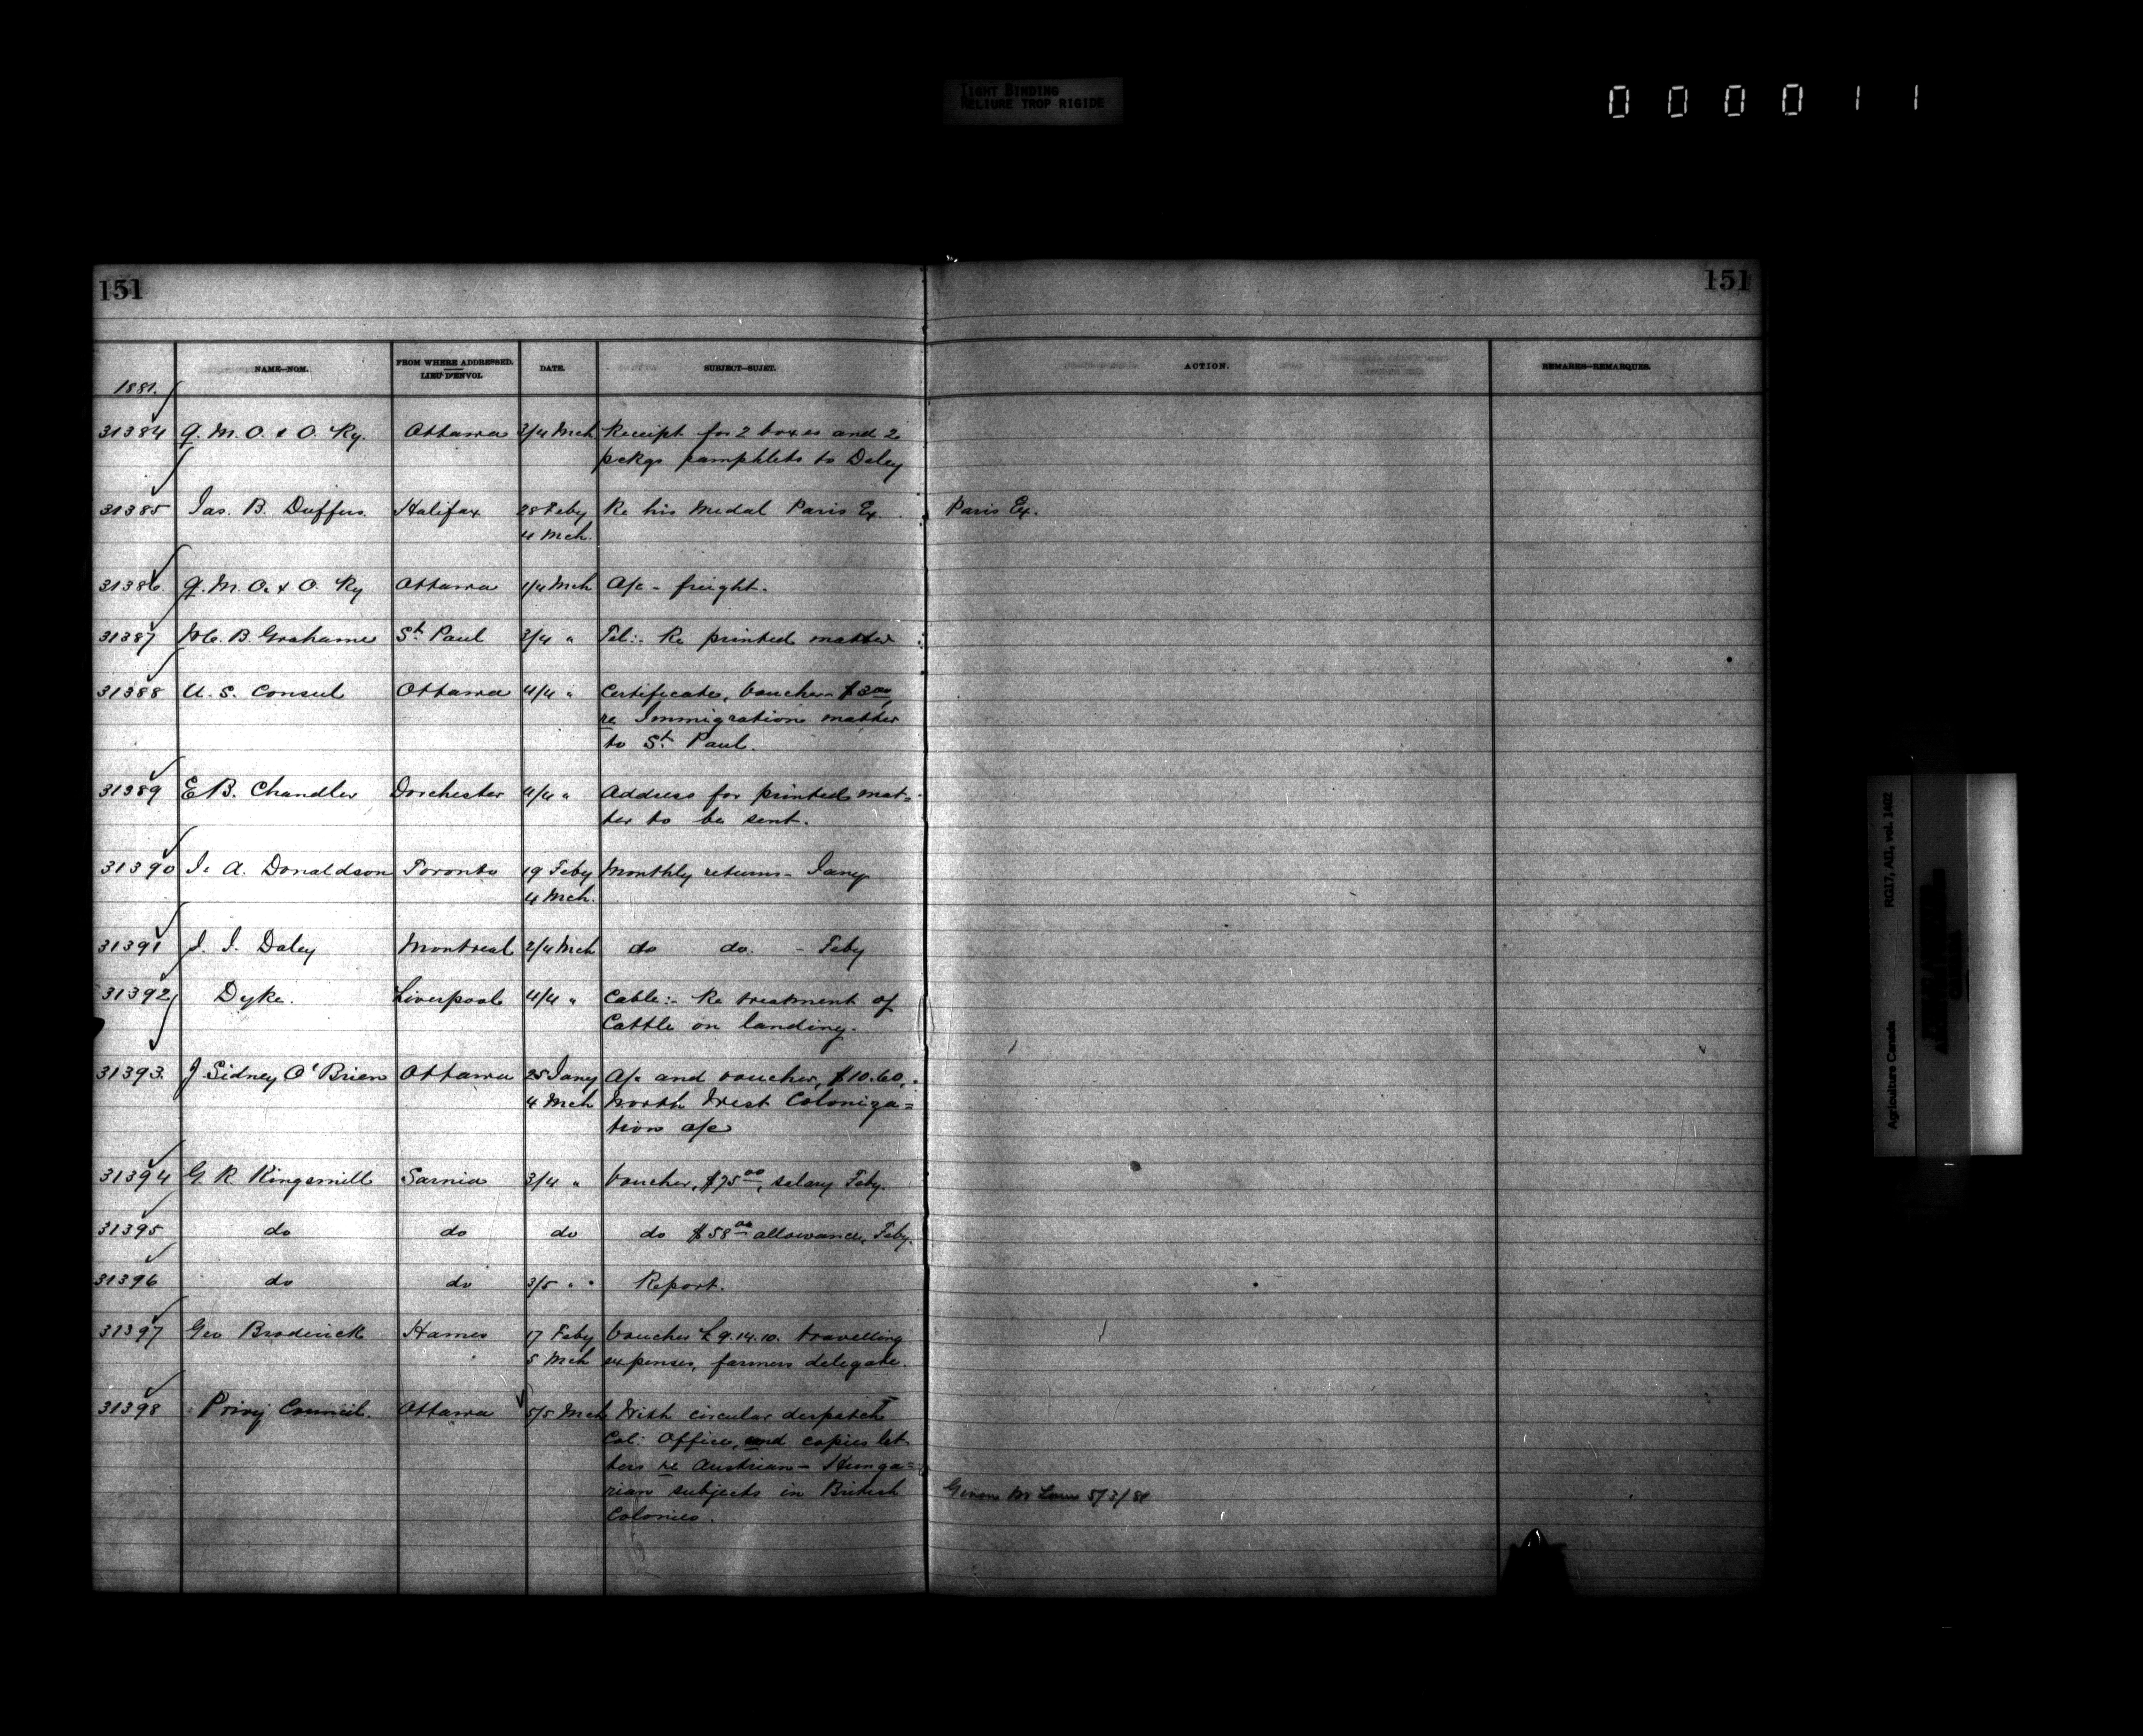 TIGHT BINDING
RELIURE TROP RIGIDE
000011
151
151
NAME—NOM.
FROM WHERE ADDRESSED.
LIEU D'ENVOI.
DATE.
SUBJECT—SUJET.
ACTION.
REMARKS—REMARQUES.
1881.
31384 Q. M. O. & O. Ry. Ottawa 3/4 Mch Receipt for 2 boxes and 2
pckgs pamphlets to Daley
31385 Jas. B. Duffus Halifax 28 Feby Re his Medal Paris Ex. Paris Ex.
4 Mch.
31386 Q. M. O. & O. Ry Ottawa 1/4 Mch A/c - freight.
31387 B. Grahame St. Paul 3/4 " Tel:- Re printed matter
31388 U. S. Consul Ottawa 4/4 " Certificate, Voucher $3.00,
re Immigration matter
to St. Paul.
31389 E. B. Chandler Dorchester 4/4 " Address for printed mat-
ter to be sent.
31390 J. A. Donaldson Toronto 19 Feby Monthly returns - Jany
4 Mch.
31391 J. J. Daley Montreal 2/4 Mch do do. - Feby
31392 Dyke. Liverpool 4/4 " Cable:- Re treatment of
Cattle on landing.
31393. J Sidney O'Brien Ottawa 25 Jany A/c and voucher, $10.60,
4 Mch North West Coloniza=
tion a/c
31394 G R Kingsmill Sarnia 3/4 " Voucher, $75.00, salary Feby.
31395 do do do do $58.00 allowance, Feby.
31396 do do 3/5 " Report.
31397 Geo Broderick Hames 17 Feby Voucher £9.14.10. travelling
5 Mch expenses, farmers delegate.
31398 Privy Council. Ottawa 5/5 Mch With circular despatch
Col: Office, and copies let
ters re Austrian - Hunga=
rian subjects in British
Colonies.
Given Mr Lowe 5/3/81
Agriculture Canada RG17, AII, vol. 1602